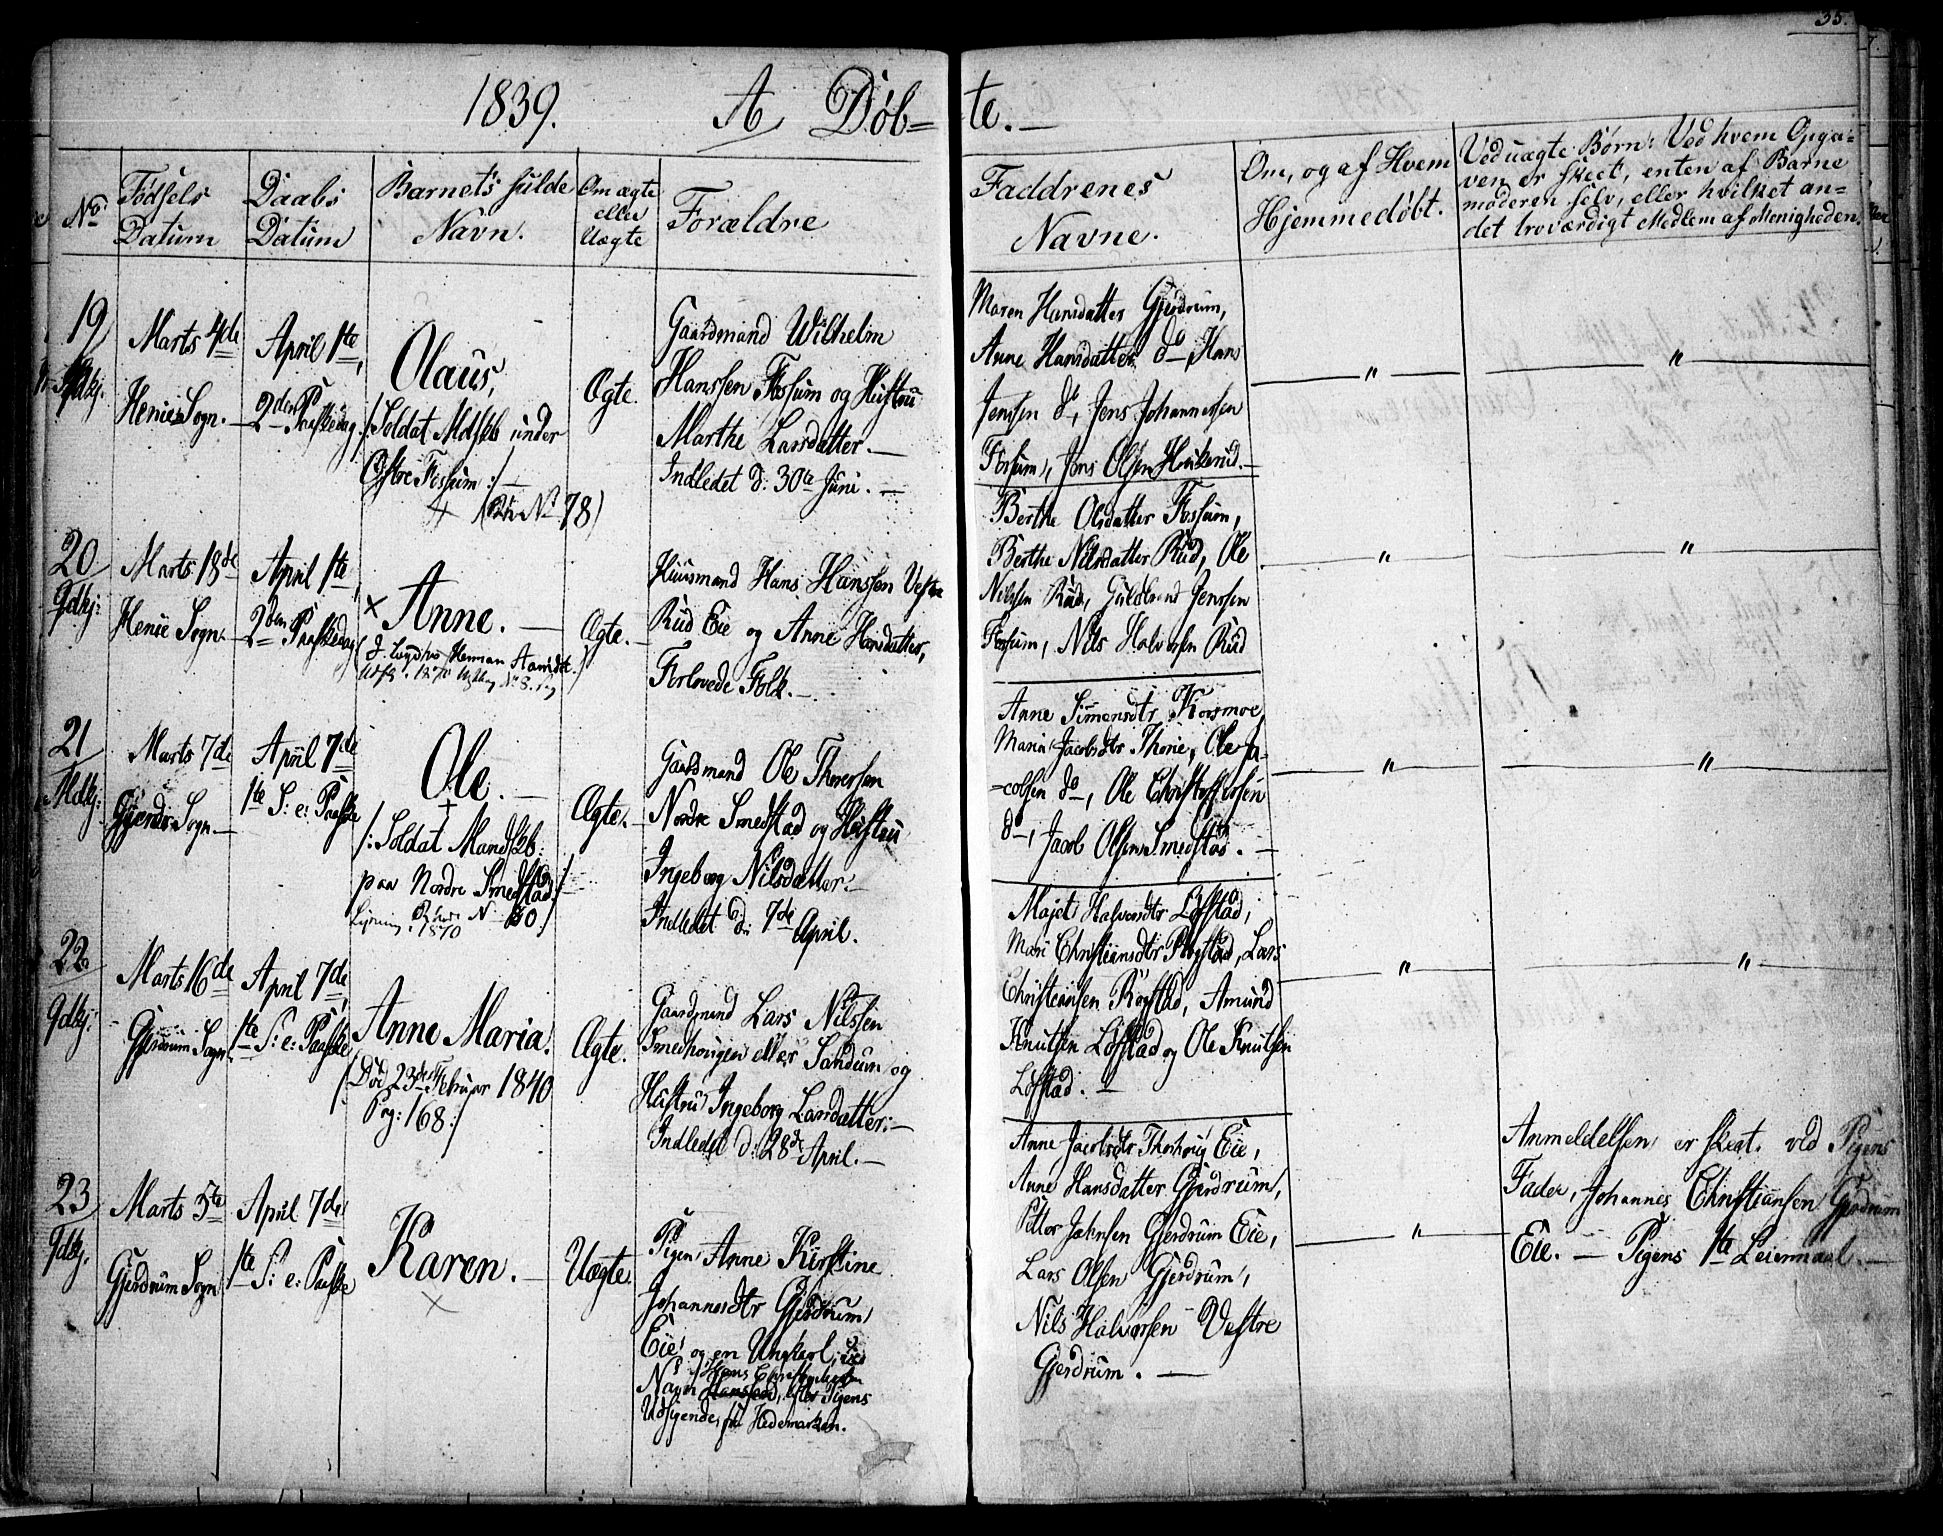 35.
1839. A Døb=
te. —
No.
Fødsels
Datum
Daabs
Datum
Barnets fulde
Navn.
Om ægte
eller
Uægte
Forældre
Faddrenes
Navne.
Om, og af Hvem
Hjemmedøbt.
Ved uægte Børn: Ved hvem Opga=
ven er skeet, enten af Barne
moderen selv, eller hvilket an=
det troværdigt Medlem af Menigheden.
19
Marts 4de
Henie Sogn. —
April 1te,
2den Paaskedag.
Olaus,
/:Soldat Mdskb under
Østre Fossum:/ —
No 78)
Ægte.
Gaardmand Wilhelm
Hanssen Fossum og Hustru
Marthe Larsdatter. —
Indledet d: 30te Juni. —
Maren Hansdatter Gjerdrum,
Anne Hansdatter do, Hans
Jenssen do, Jens Johannessen
Fossum, Jens Olsen —
"
"
20
Gdkj:
Marts 18de
Henie Sogn. —
April 1te,
2den Paaskedag
× Anne. —
Ægte. —
Huusmand Hans Hanssen Vestre
Rud Eie og Anne Hansdatter,
Forlovede Folk. —
Berthe Olsdatter Fossum,
Berthe Nilsdatter Rud, Ole
Nilssen Rud, Guldbrand Jenssen
Fossum, Nils Halvorsen Rud
"
"
21
Marts 7de
Gjerdr. Sogn —
April 7de
1te S: e: Paaske
Ole. —
/:Soldat Mandskb:
paa Nordre Smedstad:/
1870
Ægte. —
Gaardmand Ole Thoressen
Nordre Smedstad og Hustru
Ingeborg Nilsdatter. —
Indledet d: 7de April.
Anne Simensdtr Korsmoe,
Maria Jacobsdtr Thorie, Ole Ja=
=cobsen do, Ole Christoffersen
do, Jacob Olsen Smedstad. —
"
"
22
Gdkj:
Marts 16de
Gjerdrum Sogn.
April 7de,
1te S: e: Paaske
Anne Maria.
/Død 23de Februar 1840
Pag: 168:/
Ægte.
Gaardmand Lars Nilssen
Smedhougen eller Sandum og
Hustru Ingeborg Larsdatter. —
Indledet d: 28de April. —
Majet Halvorsdtr Løfstad,
Mari Christiansdtr Rogstad, Lars
Christiansen Rogstad, Amund
Knutsen Løfstad og Ole Knutsen
Løfstad. —
"
"
23
Gdkj.
Marts 5te
Gjerdrum Sogn
April 7de
1te S: e: Paaske
Karen. —
×
Uægte.
Pigen Anne Kirstine
Johannesdtr Gjerdrum
Eie og en Ungkarl,
Navn efter Pigens
Udsigende, fra Hedemarken.
Anne Jacobsdtr Eie,
Anne Hansdatter Gjerdrum,
Petter Johnsen Gjerdrum Eie,
Lars Olsen Gjerdrum,
Nils Halvorsen Vestre
Gjerdrum. —
"
Anmeldelsen er skeat ved Pigens
Fader, Johannes Christiansen Gjerdrum
Eie. — Pigens 1te Leiermaal. —